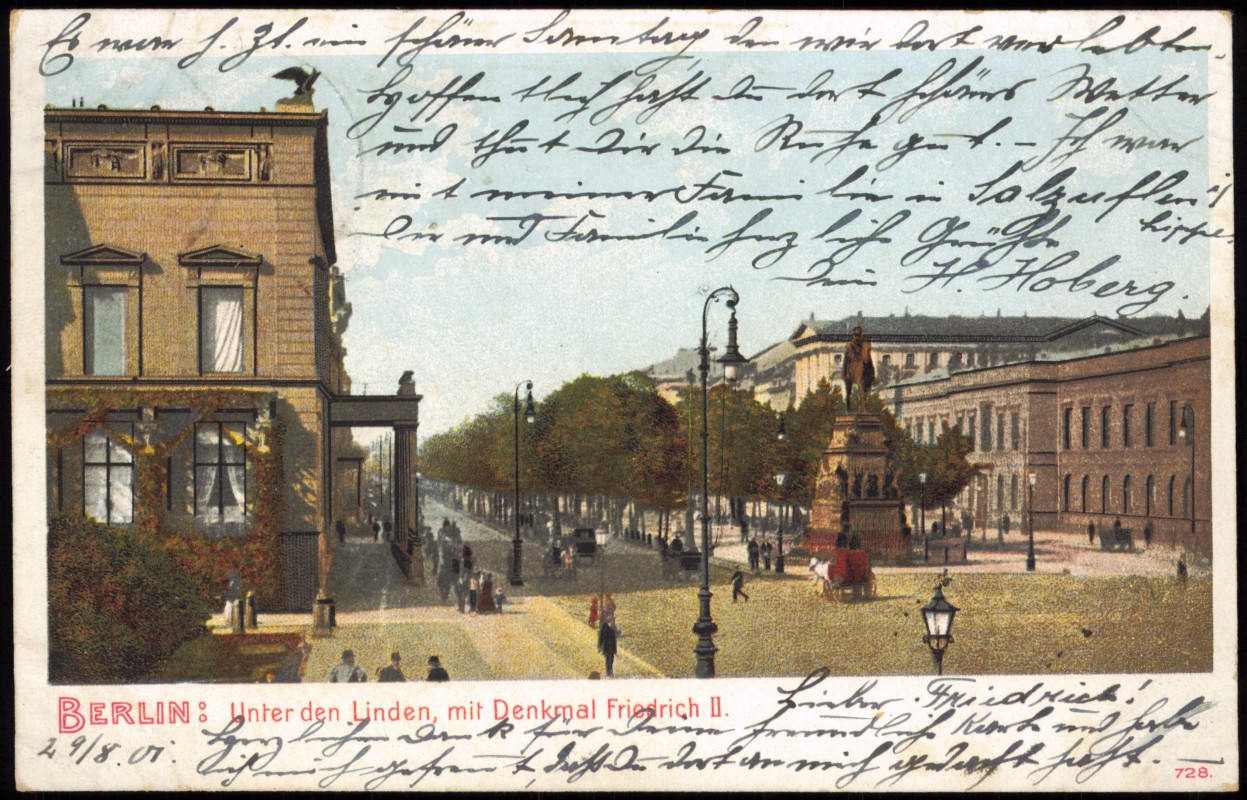 Es war s. Zt. ein schöner Samstag den wir dort verlebten.
Hoffentlich hast du dort schönes Wetter
und thut Dir die Ruhe gut. – Ich war
mit meiner Familie in Salzuflen /
Lippe.
Dir und Familie herzliche Grüße
Dein H. Hoberg.
BERLIN: Unter den Linden, mit Denkmal Friedrich II.
Lieber Friedrich!
29/8. 01. Herzlichen Dank für Deine freundliche Karte und habe
ich mich gefreut, daß Du dort an mich gedacht hast. —
728.